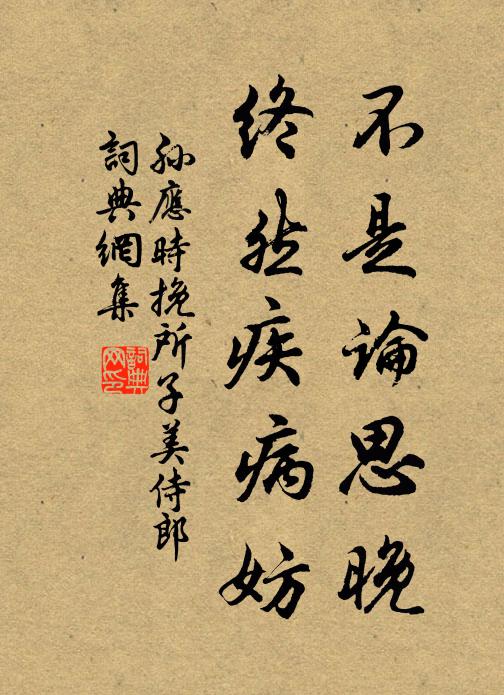 不是論思晚
終然疾病妨
孫應時挽所子美侍郎
詞典網集
詞典
网印